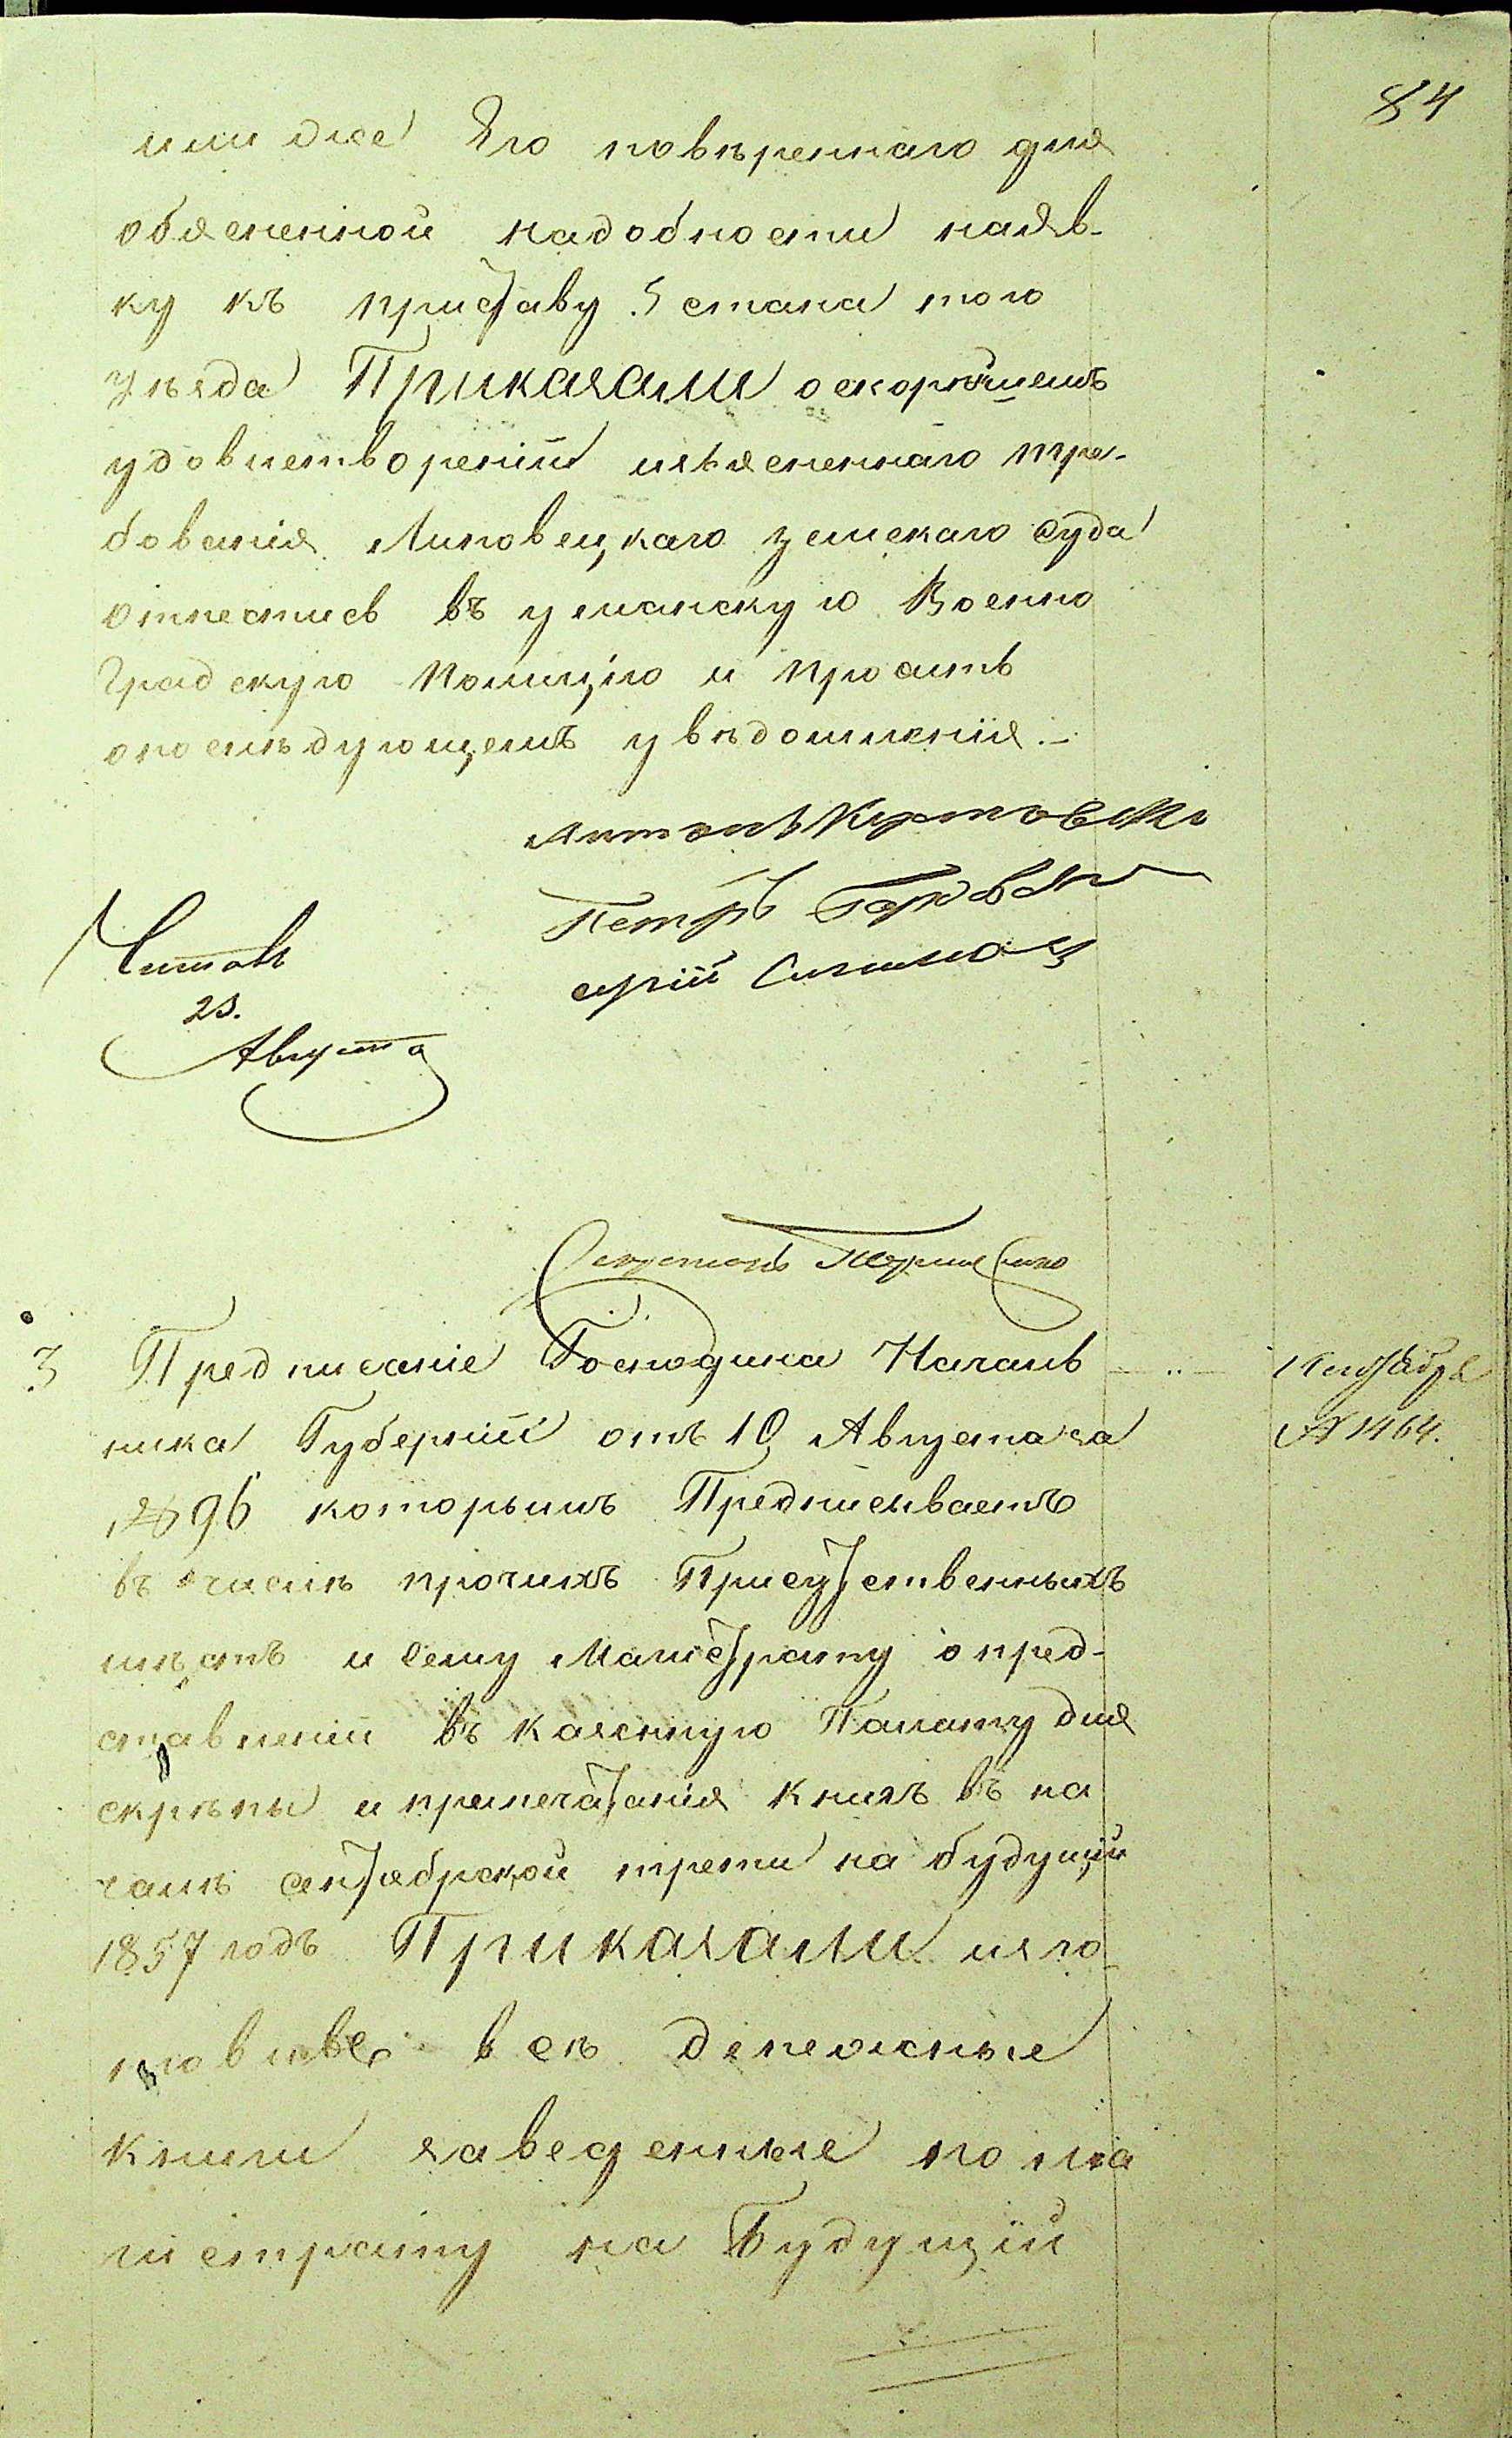 84
или же Его повѣреннаго для
обясненной надобности наяв-
ку къ приставу 5 стана того
уѣзда Приказали о скорѣйшемъ
удовлетвореніи изъясненнаго тре-
бованія Липовецкаго земскаго суда
отнестись въ уманскую Военно
Градскую Полицію и просить
опослѣдующемъ увѣдомленія.–
Антонъ
Петръ
Читалъ
23.
Августа
Секретарь
3 Предписаніе Господина Началь
ника Губерніи отъ 10 Августа за
№ 96 которымъ Предписываетъ
въ числѣ прочихъ Присутственныхъ
мѣстъ и сему Магистрату о пред-
ставленіи въ казенную Палату для
скрѣпы и припечатанія книгъ въ на
чалѣ сентябрской трети на будущій
1857 годъ Приказали изго-
товивъ всѣ денежные
книги заведенные по ма
гистрату на Будущій
1 Сентября
№ 1464.